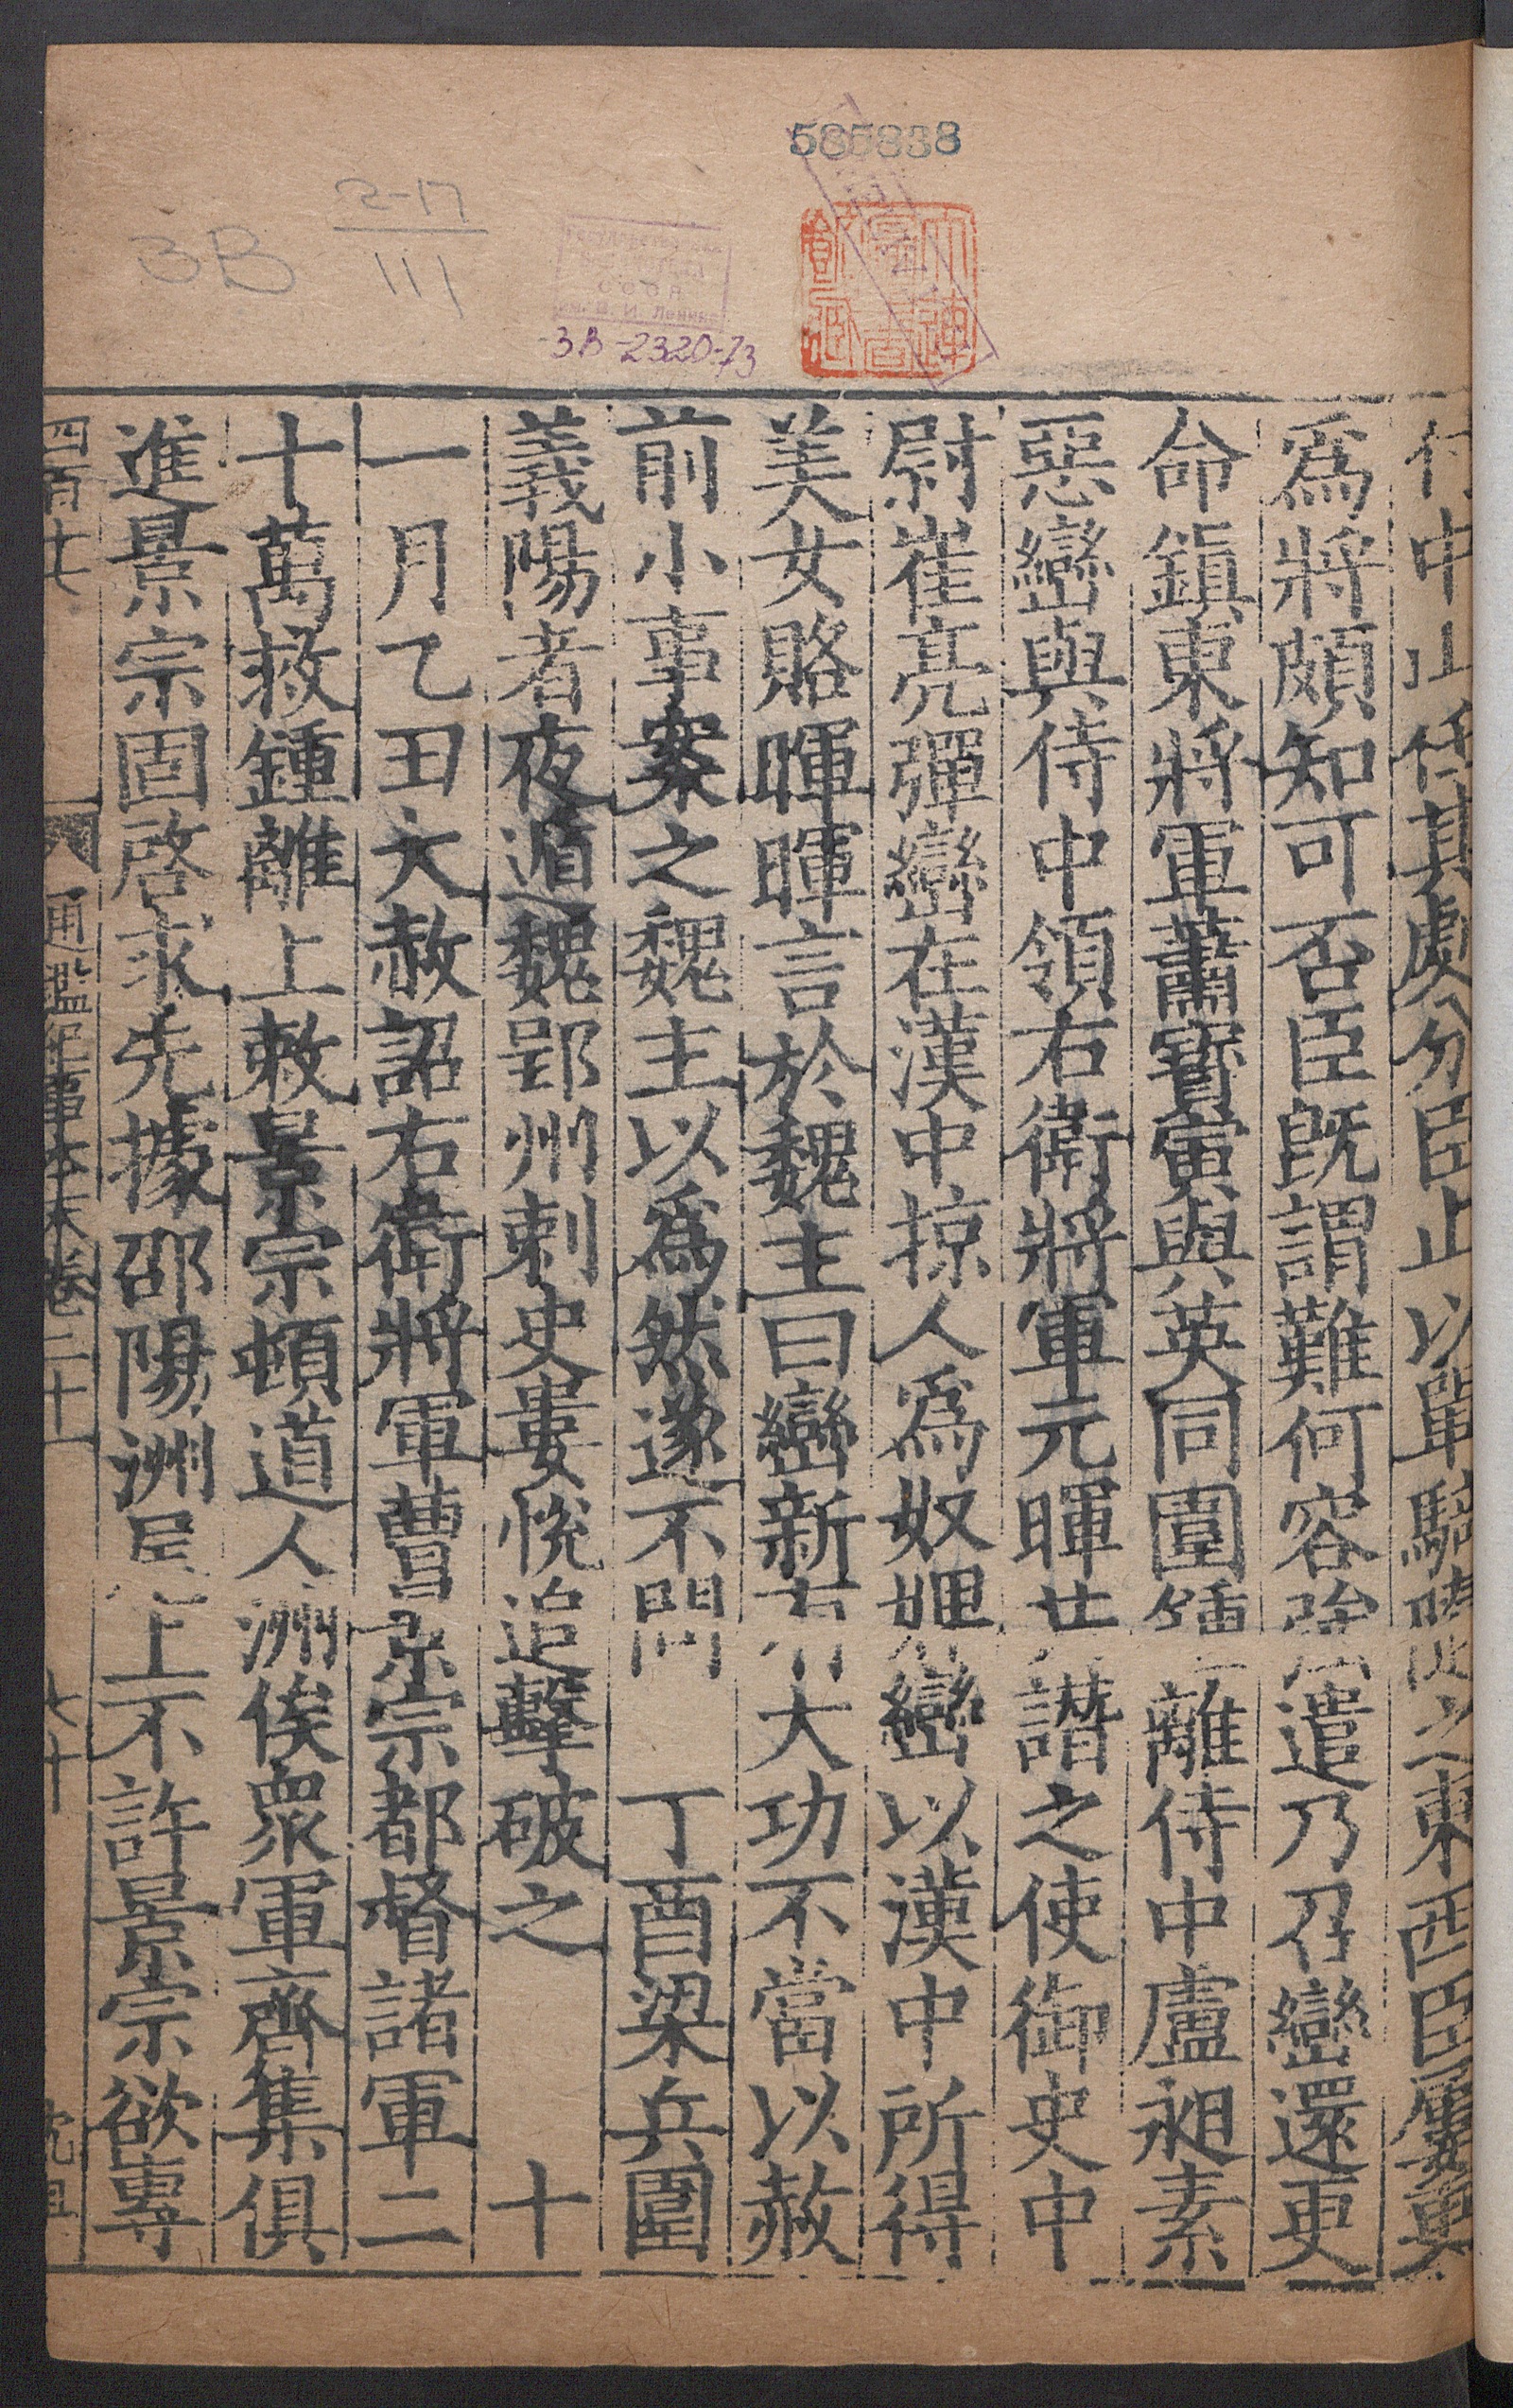 585838
2-17
111
3В
СССР
им. В. И. Ленина
3В-2320-73
付中山任其處分臣止以單騎隨之東西臣屢更
爲將頗知可否臣旣謂難何容強遣乃召巒還更
命鎮東將軍蕭寶寅與英同圍鍾離侍中盧昶素
惡巒與侍中領右衛將軍元暉共譖之使御史中
尉崔亮彈巒在漢中掠人爲奴婢巒以漢中所得
美女賂暉暉言於魏主曰巒新有大功不當以赦
前小事案之魏主以爲然遂不問 丁酉梁兵圍
義陽者夜遁魏郢州刺史婁悅追擊破之 十
一月乙丑大赦詔右衛將軍曹景宗都督諸軍二
十萬救鍾離上敕景宗頓道人洲俟衆軍齊集俱
進景宗固啓求先據邵陽洲尾上不許景宗欲專
四百十七 通鑑紀事本末卷二十 七十